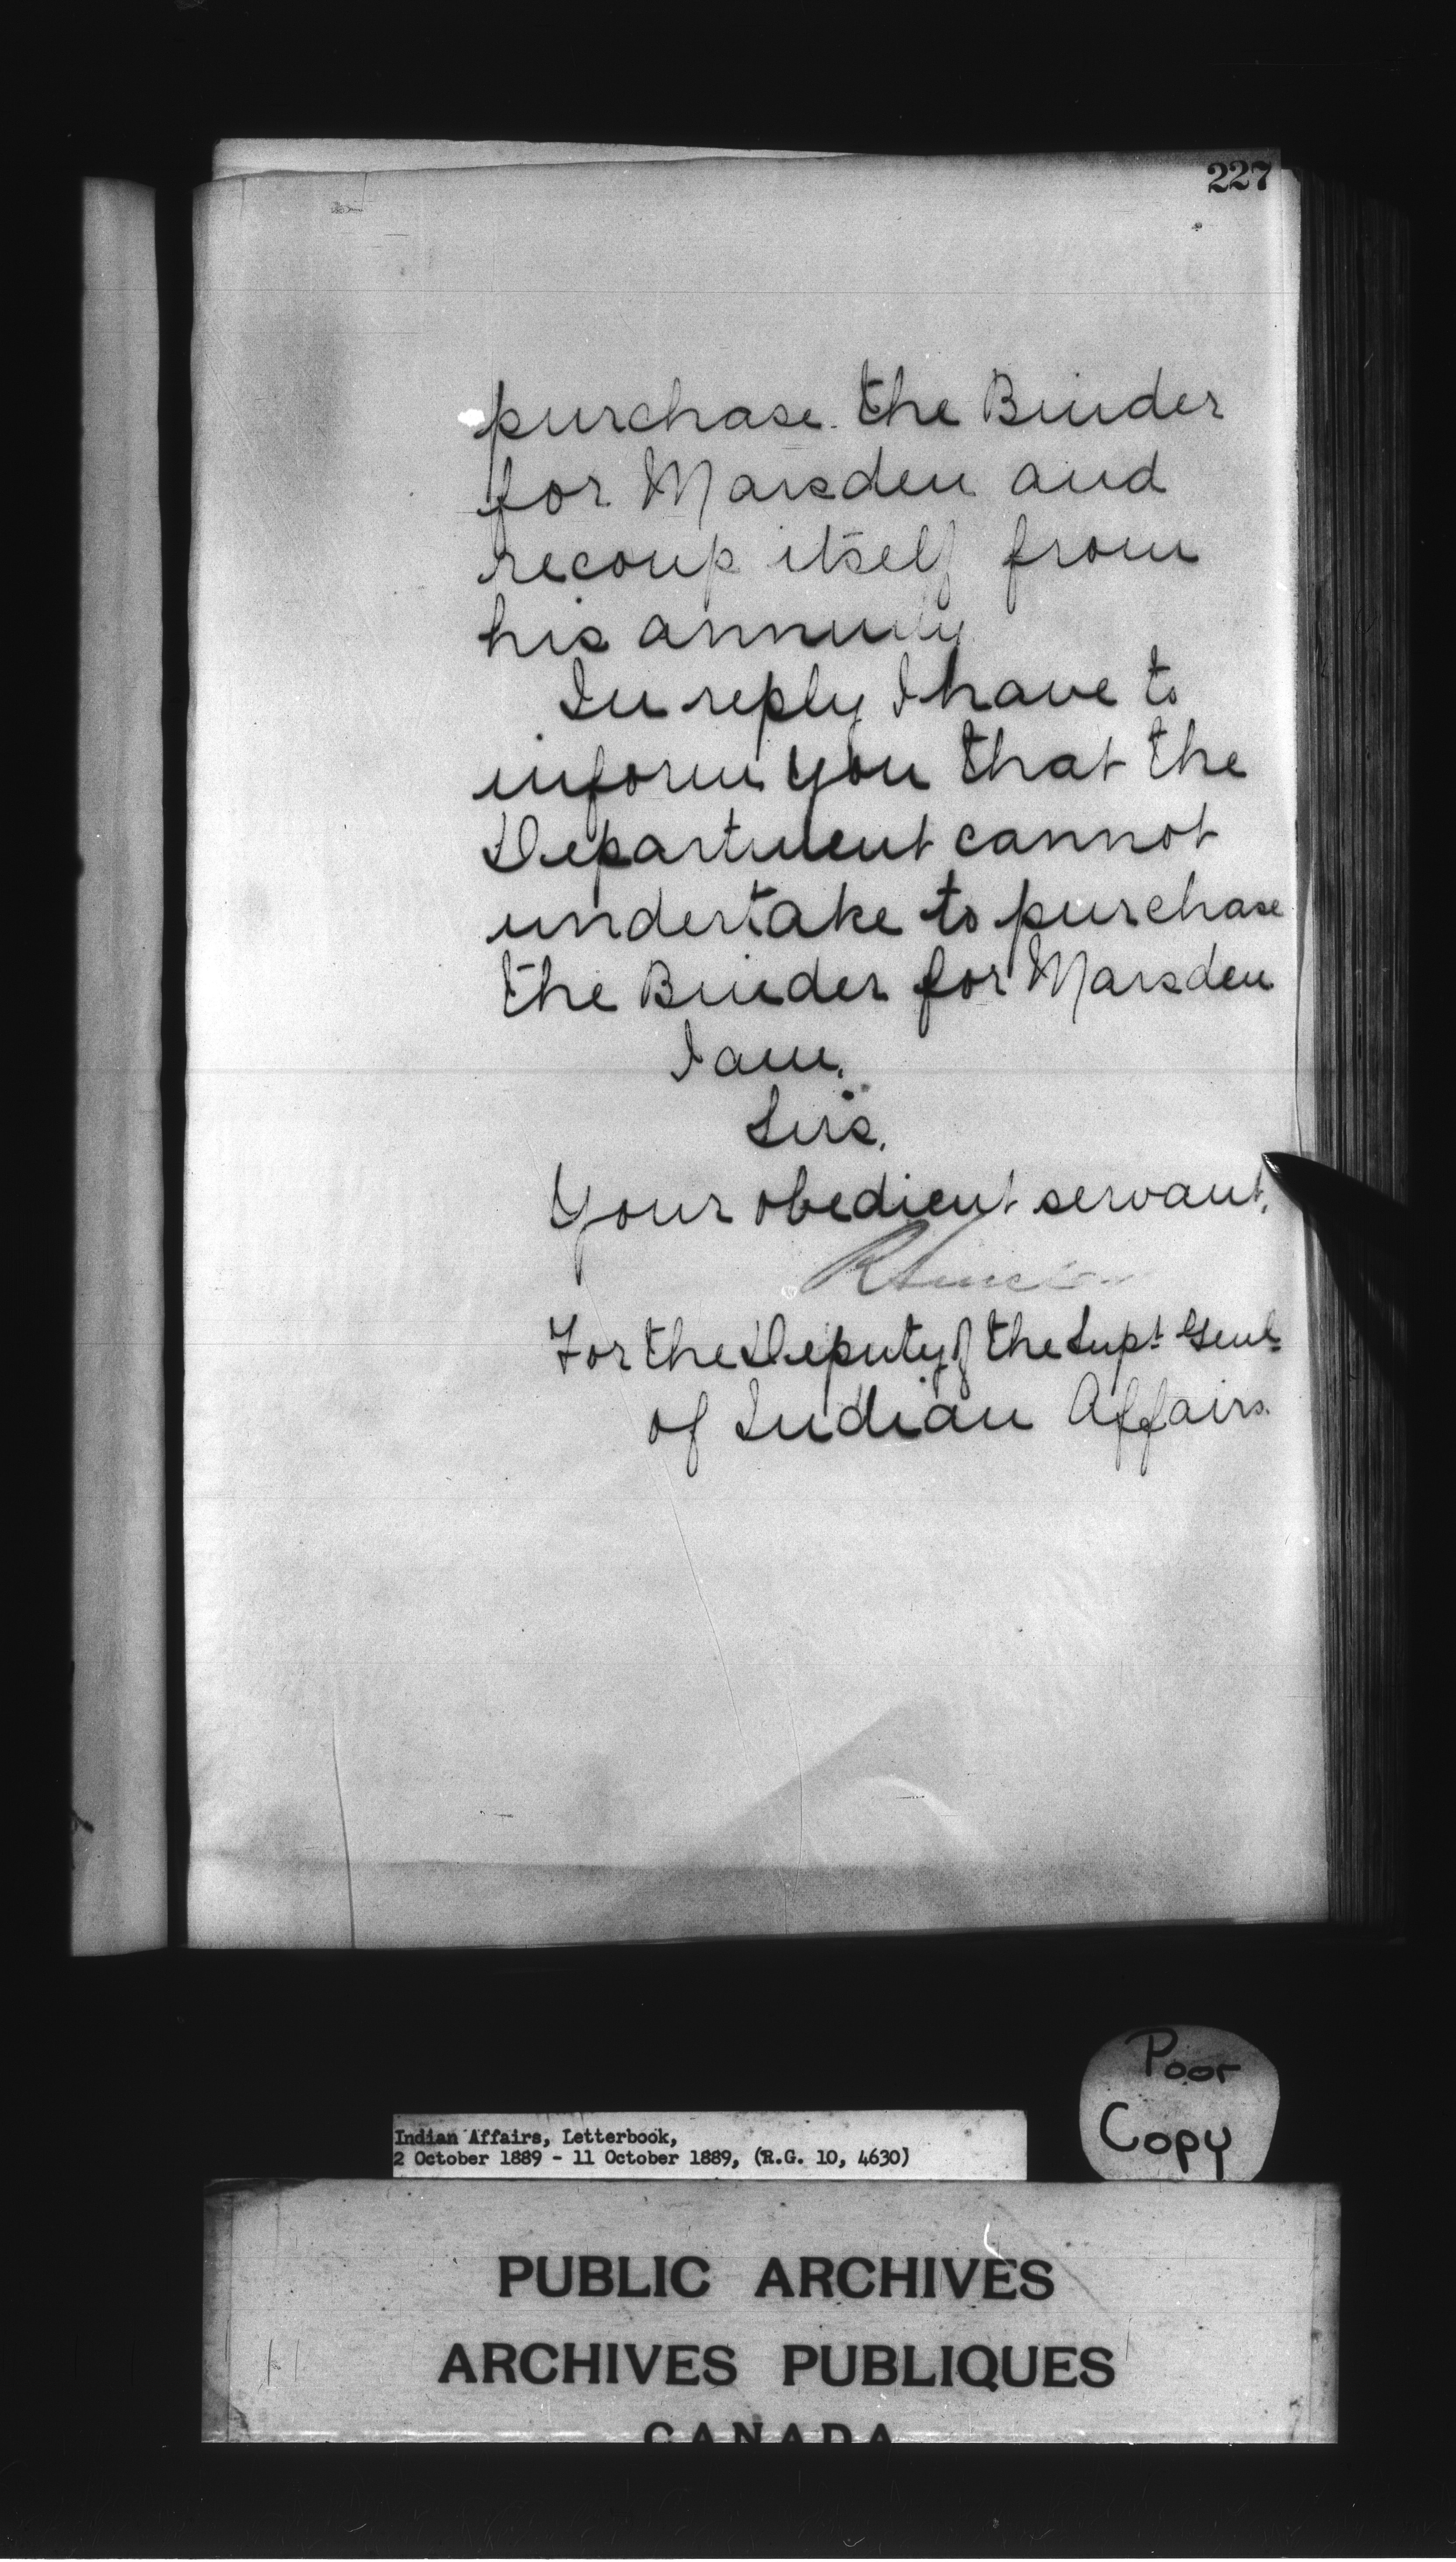 227
purchase the Binder
for Marsden and
recoup itself from
his annuity
In reply I have to
inform you that the
Department cannot
undertake to purchase
the Binder for Marsden
I am,
Sirs,
Your obedient servant,
For the Deputy of the Supt. Genl.
of Indian Affairs.
Poor
Copy
Indian Affairs, Letterbook,
2 October 1889 - 11 October 1889, (R.G. 10, 4630)
PUBLIC ARCHIVES
ARCHIVES PUBLIQUES
CANADA